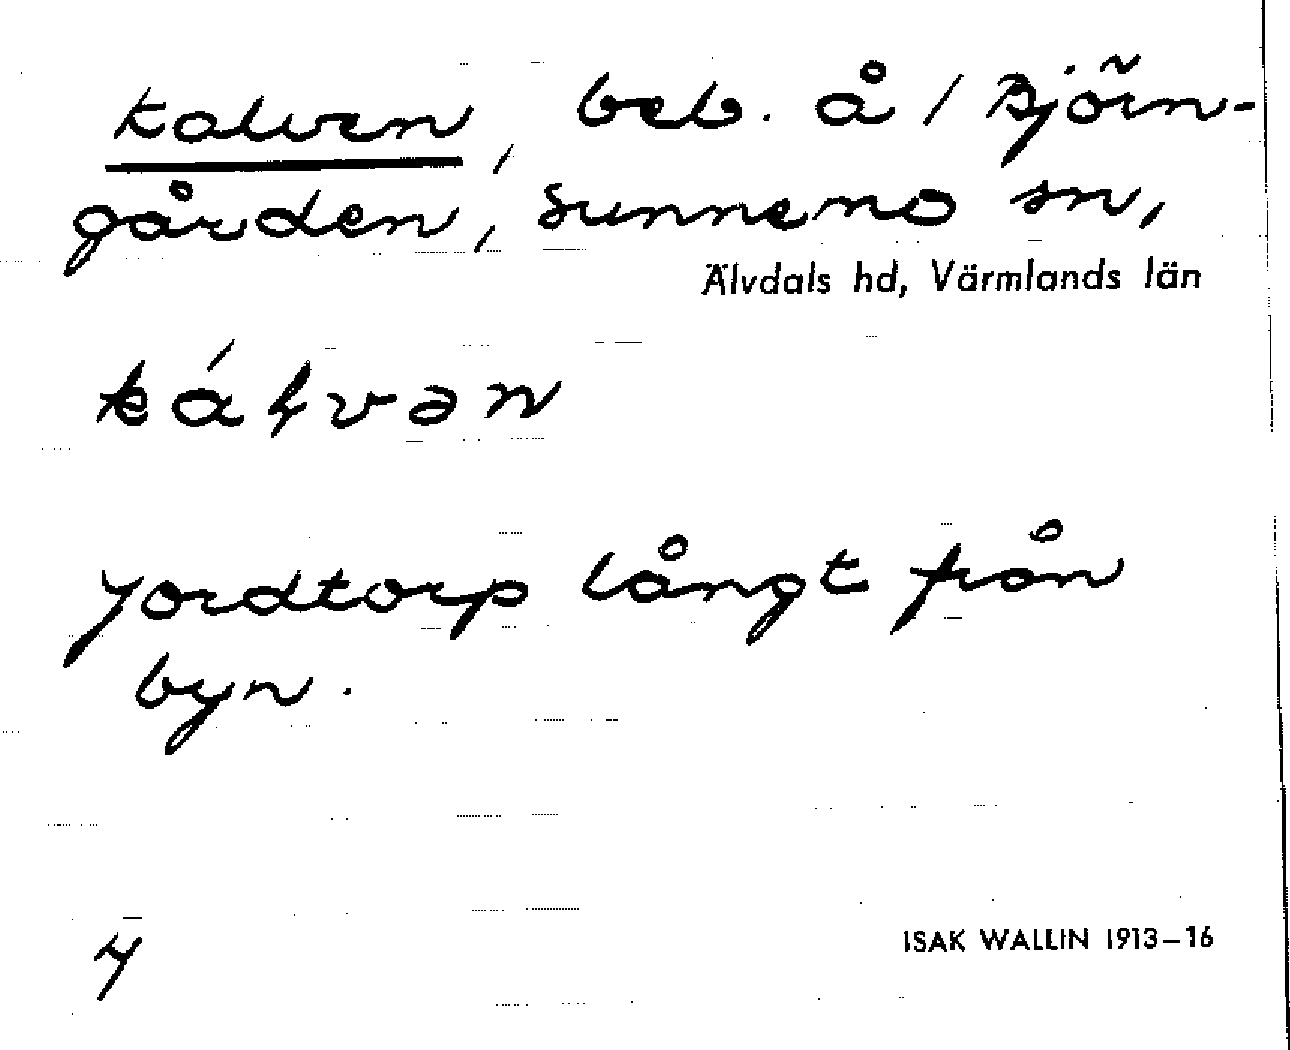 Kalven, beb. å 1 Björn-
gården, Sunnemo sn,
Älvdals hd, Värmlands län
káɫvən
Jordtorp långt från
byn.
4
ISAK WALLIN 1913–16